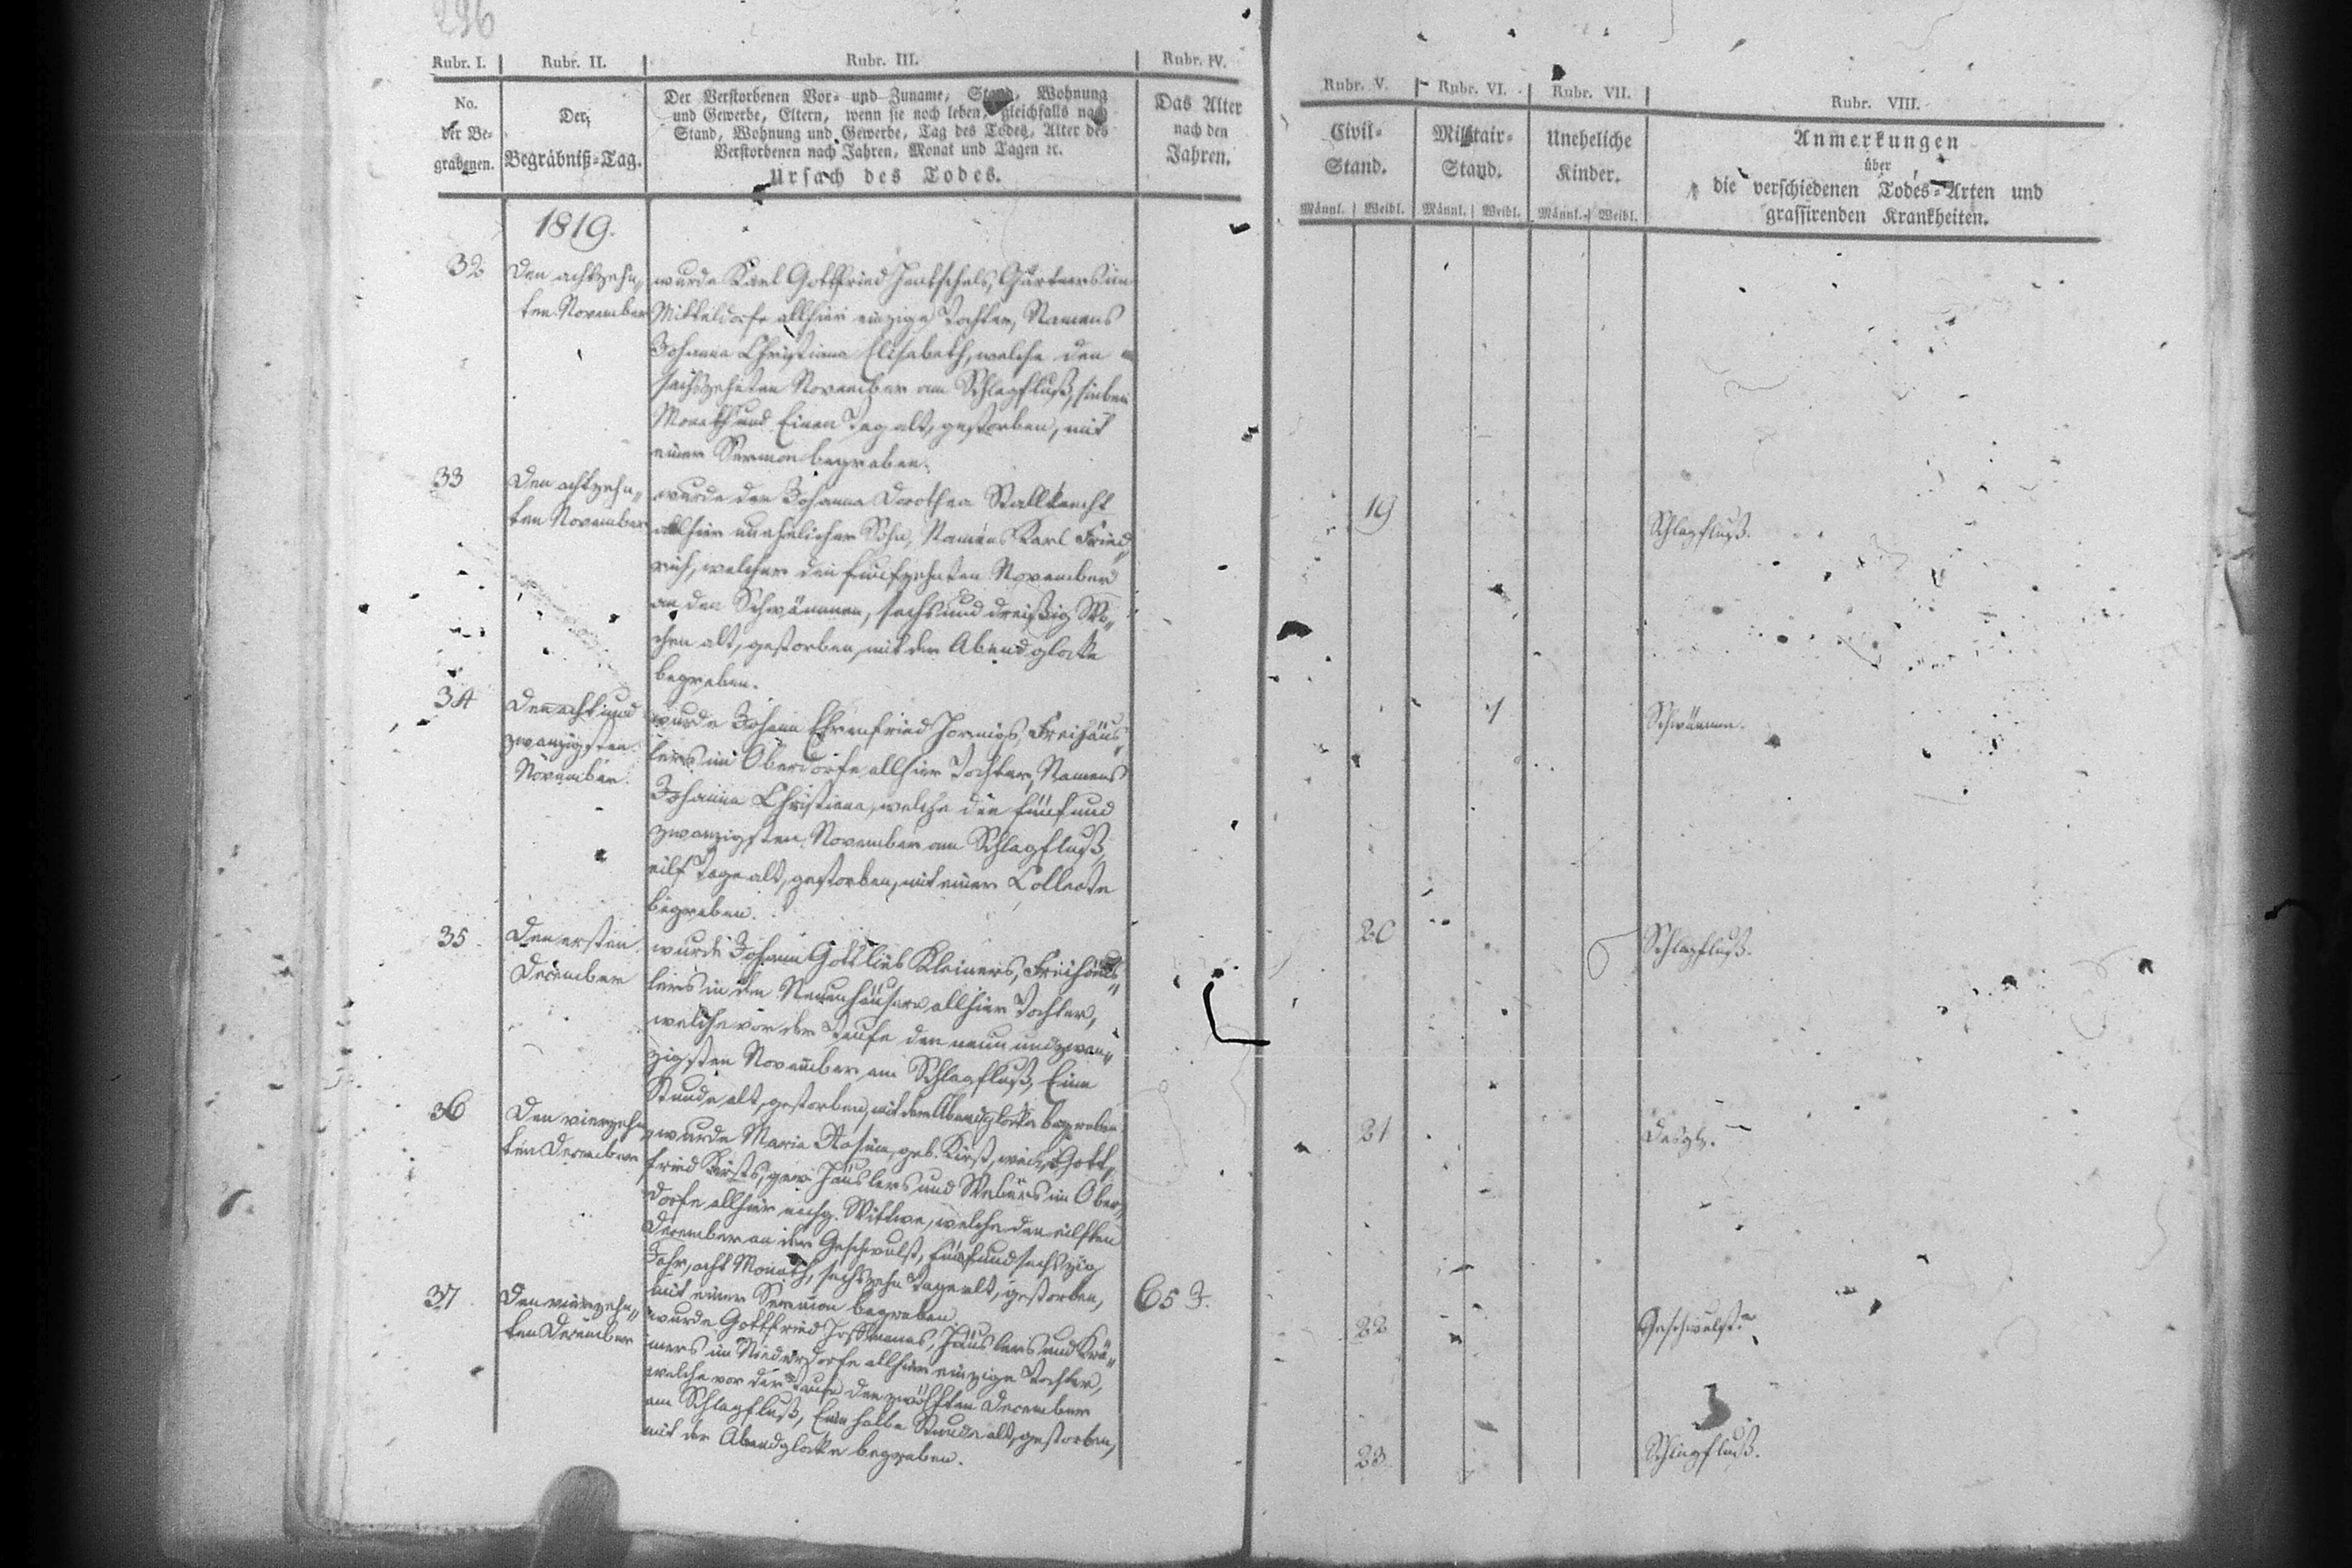 296
Rubr. I.
Rubr. II.
Rubr. III.
Rubr. IV.
No.
der Be-
grabenen.
Der
Begräbniß-Tag.
Der Verstorbenen Vor- und Zuname, Stand, Wohnung
und Gewerbe, Eltern, wenn sie noch leben, gleichfalls nach
Stand, Wohnung und Gewerbe, Tag des Todes, Alter des
Verstorbenen nach Jahren, Monat und Tagen ec.
Ursach des Todes.
Das Alter
nach den
Jahren.
1819.
32
Den achtzehn„
ten November
wurde Karl Gottfried Hentschels, Gärtners im
Mitteldorfe allhier einzige Tochter, Namens
Johanna Christiana Elisabeth, welche den
sechszehnten November am Schlagfluß, sieben
Monath und Einen Tag alt, gestorben, mit
einer Sermon begraben.
33
Den achtzehn„
ten November
wurde der Johanna Dorothea Stallknecht
allhier unehelicher Sohn, Namens Karl Fried„
rich, welcher den funfzehnten November
an den Schwämmen, sechs und dreißig Wo„
chen alt, gestorben, mit der Abendglocke
begraben.
34
Den acht und
zwanzigsten
November.
wurde Johann Ehrenfried Hornigs, Freihäus„
lers im Oberdorfe allhier Tochter, Namens
Johanna Christiana, welche den fünf und
zwanzigsten November am Schlagfluß,
eilf Tage alt, gestorben, mit einer Collecte
begraben.
35
Den ersten
December
wurde Johann Gottlieb Kleiners, Freihäus„
lers in den Neuenhäusern allhier Tochter,
welche vor der Taufe den neun und zwan„
zigsten November am Schlagfluß, Eine
Stunde alt, gestorben, mit der Abendglocke begraben.
36
Den vierzehn„
ten December
wurde Maria Rosina, geb. Kirst, weil. Gott„
fried Kirsts, gew. Häuslers und Webers im Ober„
dorfe allhier nachg. Wittwe, welche den eilften
December an der Geschwulst, fünf und sechszig
Jahr, acht Monath, sechszehn Tage alt, gestorben,
mit einer Sermon begraben.
65 J.
37
Den vierzehn„
ten December
wurde Gottfried Hoffmanns, Häuslers und Krä„
mers im Niederdorfe allhier einzige Tochter,
welche vor der Taufe den zwölften December
am Schlagfluß, Eine halbe Stunde alt, gestorben,
mit der Abendglocke begraben.
Rubr. V.
Rubr. VI.
Rubr. VII.
Rubr. VIII.
Civil-
Stand.
Militair-
Stand.
Uneheliche
Kinder.
Anmerkungen
über
die verschiedenen Todes-Arten und
grassirenden Krankheiten.
Männl. Weibl. Männl. Weibl. Männl. Weibl.
19
Schlagfluß.
1
Schwämme.
20
Schlagfluß.
21
Desgl.
22
Geschwulst.
23
Schlagfluß.